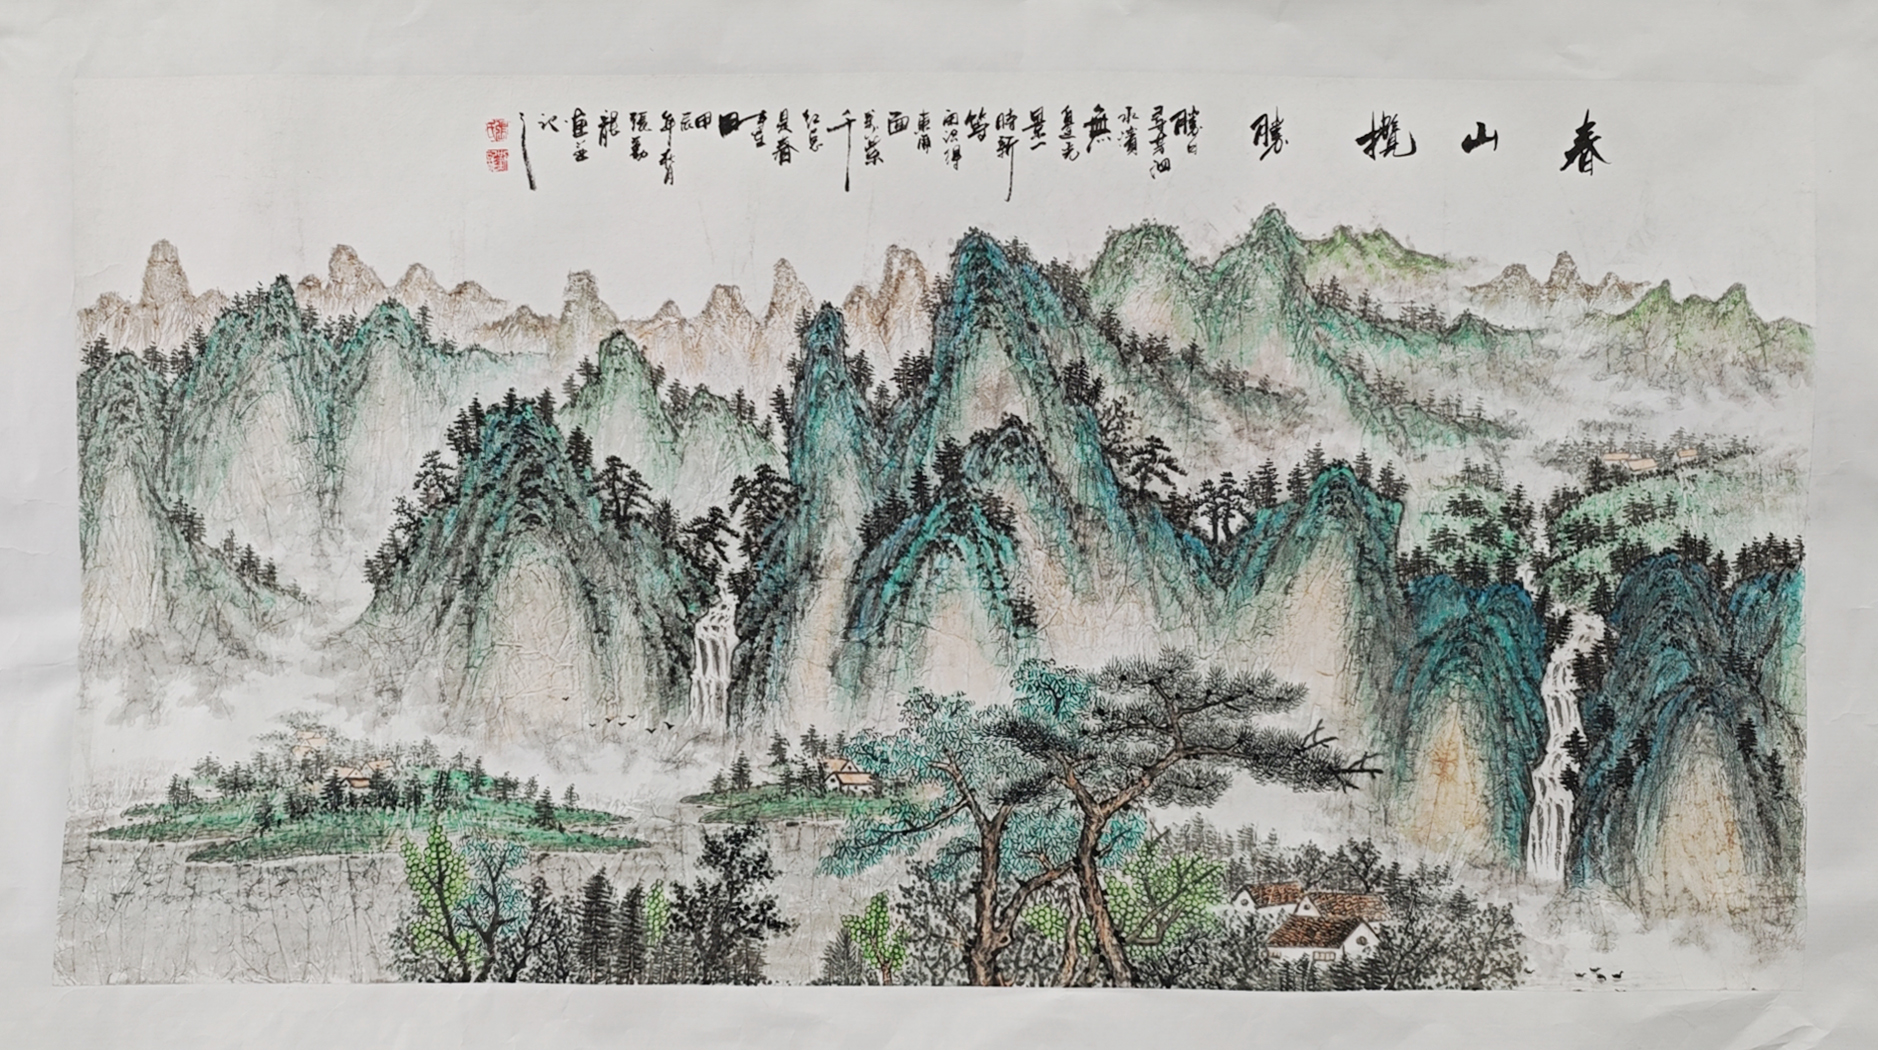 春山攬勝
勝日
尋芳泗
水濱
無
邊光
景一
時新
等
閑识得
東風
面
萬紫
千
红总
是春
甲
辰
年
張勤
龍
畫並
记
之